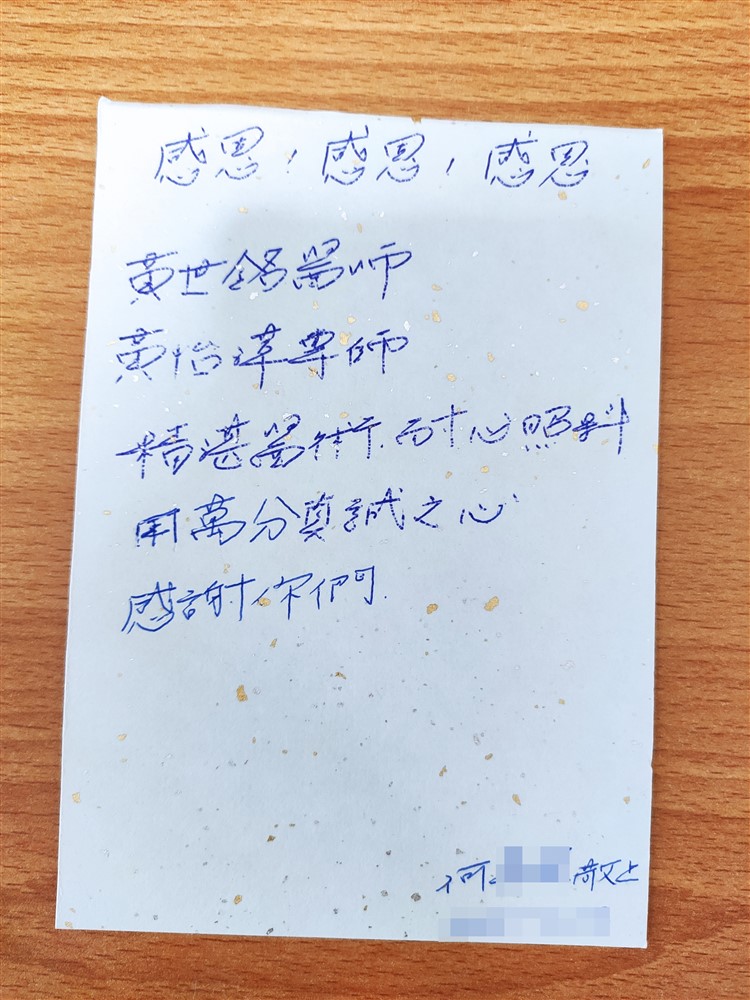 感恩，感恩，感恩
黃世銘醫師
黃怡萍專師
精湛醫術耐心照料
用萬分真誠之心
感謝你們
何 敬上